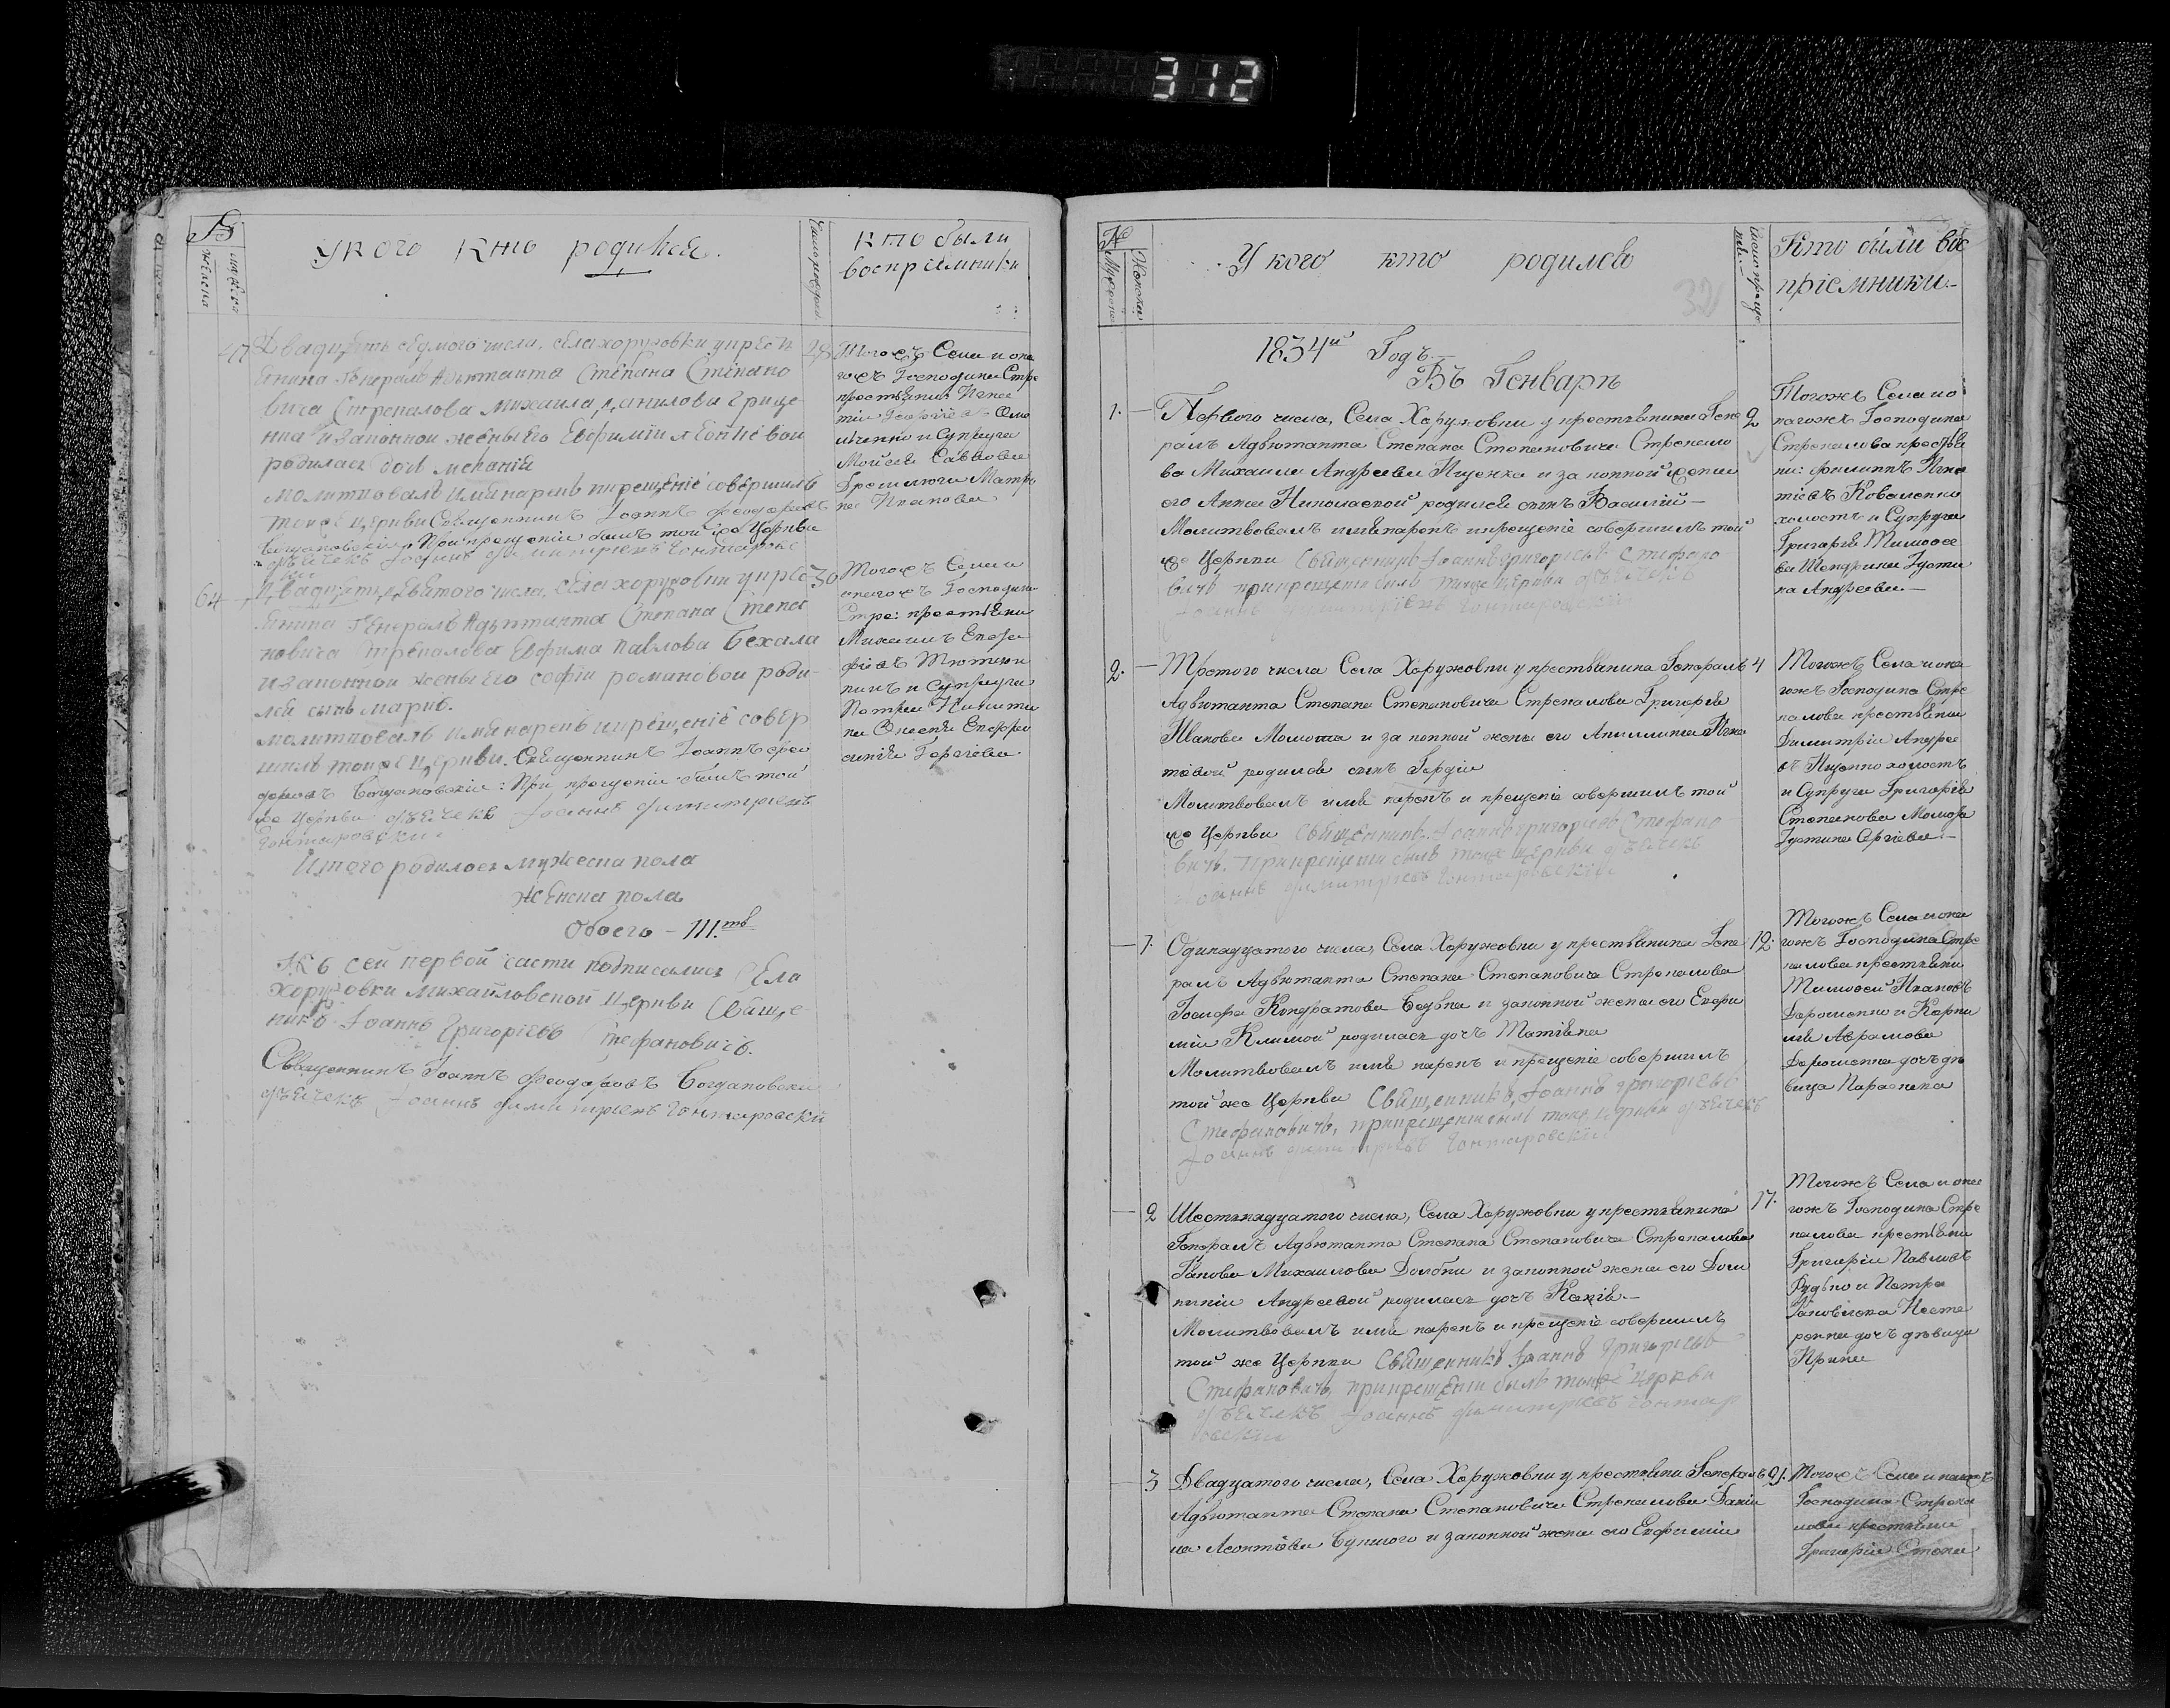 312
№
У кого кто родился.
число крещен.
кто были
воспріемники
женска
мужеска
47
Двадцать седмого числа, села хоружовки у крест
янина Генералъ Адъютанта Степана Степано
вича Стрекалова Михаила Данилова Грице-
нка и законной жены его Евфиміи
родилась дочь Меланія
молитвовалъ имя нарекъ и крещеніе совершилъ
тоеже церкви Священникъ Іоаннъ Феодоровъ
Богдановскій. При крещеніи былъ той же Церкви
дьячекъ Іоаннъ Димитріевъ Гонтаровс
кій
28
Тогожъ Села и она
гожъ Господина Стре
крестьяни
и Супруга
Моисея Саввова
Матро
на Иванова
64
Двадцать девятого числа, села хоружовки у крес
янина Генералъ Адъютанта Степана Степа
новича Стрекалова Евфима Павлова Бехала
и законной жены его Софіи Романовой роди-
лся сынъ Маркъ.
молитвовалъ имя нарекъ и крещеніе совер
шилъ тоеже Церкви. Священникъ Іоаннъ Фео
доровъ Богдановскій: При крещеніи былъ той
же Церкви дьячекъ Іоаннъ Димитріевъ
Гонтаровскій
30
Тогожъ Села и
оногожъ Господина
Стре: крестьяни
Михаилъ
и Супруга
Петра Никити
Итого родилось мужеска пола
женска пола
обоего – 111.
Къ сей первой части подписались Села
хоружовки Михайловской Церкви Священ
никъ Іоаннъ Григоріевъ Стефановичъ.
Священникъ Іоаннъ Феодоровъ Богдановски
дьячекъ Іоаннъ Димитріевъ Гонтаровскій
№
Мужеска
Женска
У кого кто родился
число креще
нія.
Кто были вос
пріемники.
32
1834й Годъ.
Въ Генваръ
1.
Первого числа, Села Хоружовки у крестьянина Гене
ралъ Адъютанта Степана Степановича Стрекало
ва Михаила Андреева Яценка и законной жены
его Анны Николаевой родился сынъ Василій
Молитвовалъ имя нарекъ и крещеніе совершилъ той
же Церкви Священникъ Іоаннъ Григоріевъ Стефано
вичъ при крещеніи былъ тоеже церкви дьячекъ
Іоаннъ Димитріевъ Гонтаровскій
2
Тогожъ Села и о
нагожъ Господина
Стрекалова крестья
ни: Филиппъ Игна
тіевъ Коваленко
холостъ и Супруга
Григорія Тимофее
ва Іусти
на Андреева.
2.
Третого числа Села Хоружовки у крестьянина Генералъ
Адъютанта Степана Степановича Стрекалова Григорія
Иванова Момота и законной жены его Акилины Игна
тіевой родился сынъ Гордій
Молитвовалъ имя нарекъ и крещеніе совершилъ той
же Церкви Священникъ Іоаннъ Григоріевъ Стефано
вичъ. При крещеніи былъ тоеже церкви дьячекъ
Іоаннъ Димитріевъ Гонтаровскій
4
Тогожъ Села и она
гожъ Господина Стре
калова крестьяни
Димитрій Андрее
въ Яценко холостъ
и Супруга Григорія
Степанова Момота
Іустина Сергіева.
1.
Одинадцатого числа, Села Хоружовки у крестьянина Гене
ралъ Адъютанта Степана Степановича Стрекалова
Іосифа Кондратова Бодъна и законной жены его Евфи
міи Климой родилась дочь Татіана
Молитвовалъ имя нарекъ и крещеніе совершилъ
той же Церкви Священникъ Іоаннъ Григоріевъ
Стефановичъ, при крещеніи былъ тоеже Церкви дьячекъ
Іоаннъ Димитріевъ Гонтаровскій
12.
Тогожъ Села и она
гожъ Господина Стре
калова крестьяни
Тимофей Ивановъ
Дорошенко и Корни
лія Аврамова
Дорошенка дочь дѣ
вица Параскева
2
Шестнадцатого числа, Села Хоружовки у крестьянина
Генералъ Адъютанта Степана Степановича Стрекалова
Іакова Михаилова Долбни и законной жены его Дом
никіи Андреевой родилась дочь Ксенія.
Молитвовалъ имя нарекъ и крещеніе совершилъ
той же Церкви Священникъ Іоаннъ Григоріевъ
Стефановичъ, при крещеніи былъ тоеже церкви
дьячекъ Іоаннъ Димитріевъ Гонтар
овскій
17.
Тогожъ Села и она
гожъ Господина Стре
калова крестьяни
Григорій Павловъ
Рудько и Петра
Яковлева Несте
ренка дочь дѣвица
Ирина
3
Двадцатого числа, Села Хоружовки у крестьяни Генералъ
Адъютанта Степана Степановича Стрекалова Дани
ла Леонтіева Буцкого и законной жены его Евфиміи
21.
Тогожъ Села и
Господина Стрека
лова крестьяни
Григорій Степа